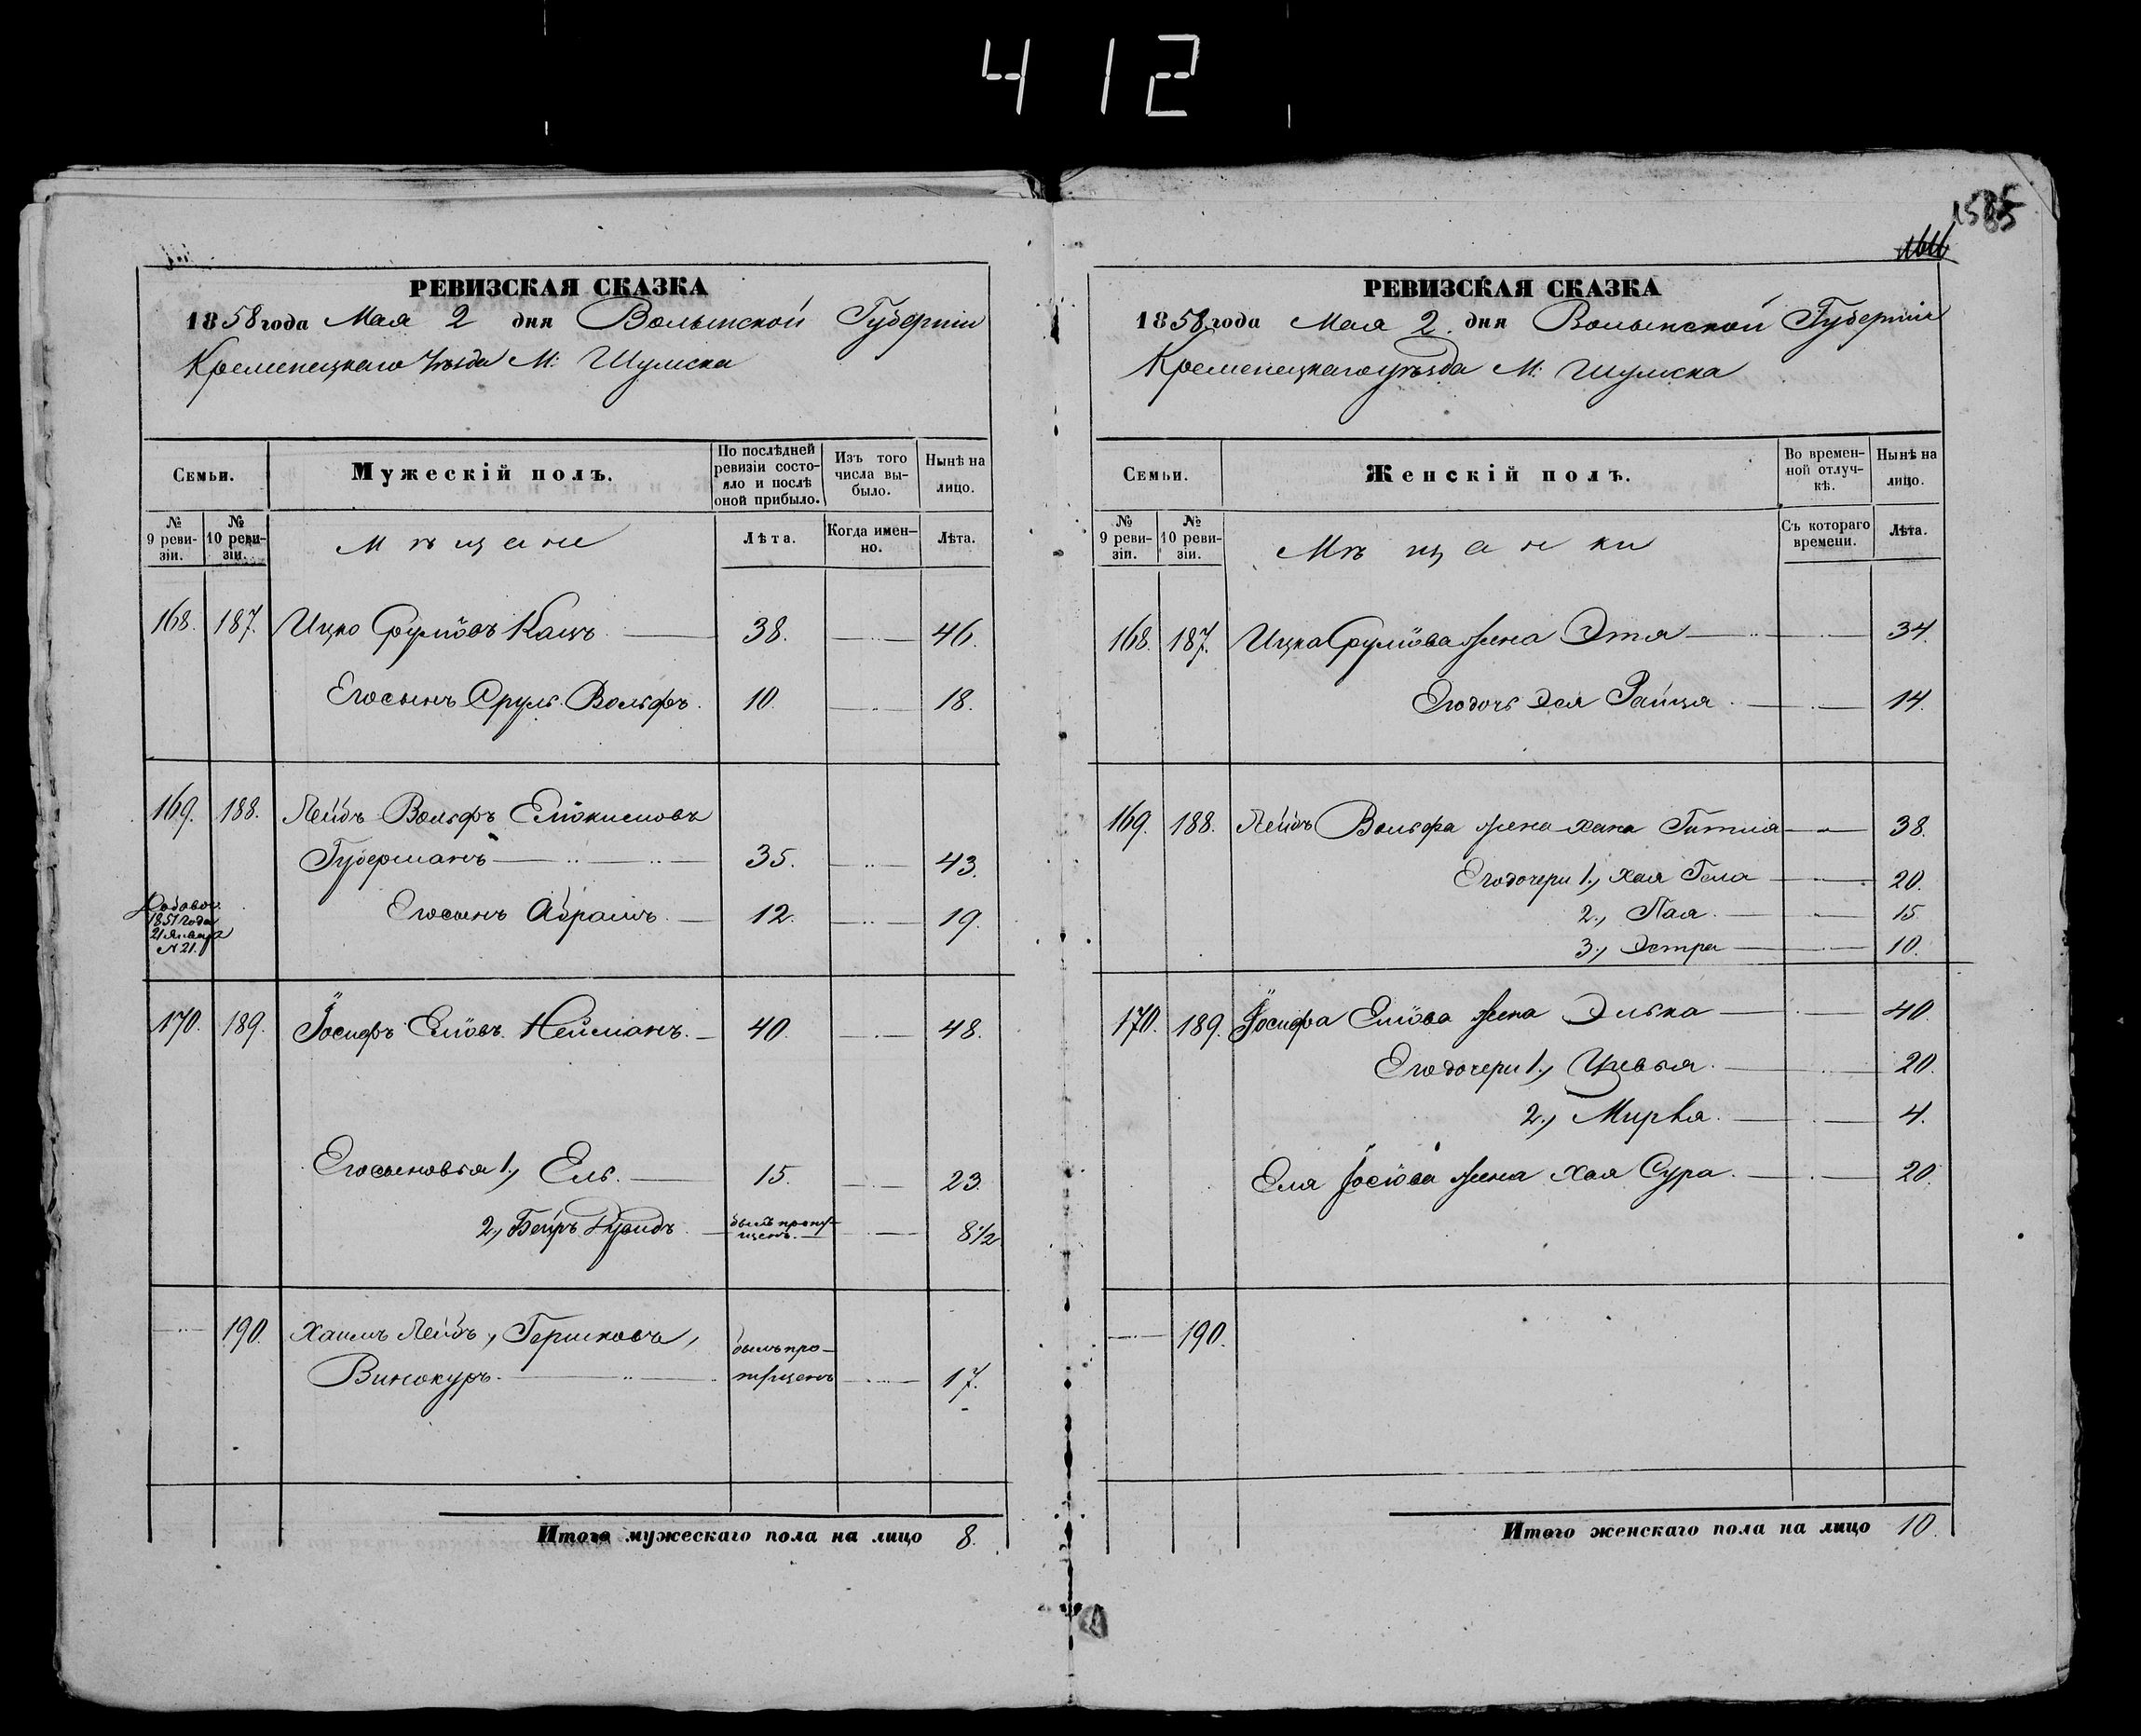 412
1585
РЕВИЗСКАЯ СКАЗКА
1858 года Мая 2 дня Волынской Губернiи
Кременецкаго Уѣзда М: Шумска
Семьи.
Мужескiй полъ.
По послѣдней ревизiи состояло и послѣ оной прибыло.
Изъ того числа выбыло.
Нынѣ на лицо.
№ 9 ревизiи.
№ 10 ревизiи.
Мѣщане
Лѣта.
Когда именно.
Лѣта.
168. 187. Ицко Срулiовъ Кацъ 38. 46.
Его сынъ Сруль Вольфъ. 10. 18.
169. 188. Лейбъ Вольфъ
Губерманъ 35. 43.
Его сынъ Абрамъ 12. 19.
1851 года
21 Января
№ 21.
170. 189. Iосифъ Елiовъ Нейманъ. 40. 48.
Его сыновья 1., Ель. 15. 23.
2., Беръ былъ пропущенъ. 8 1/2
190. Хаимъ Лейбъ, Гершковъ,
Винокуръ. былъ пропущенъ 17.
Итого мужескаго пола на лицо 8.
РЕВИЗСКАЯ СКАЗКА
1858 года Мая 2. дня Волынской Губернiи
Кременецкаго уѣзда М: Шумска
Семьи.
Женскiй полъ.
Во временной отлучкѣ.
Нынѣ на лицо.
№ 9 ревизiи.
№ 10 ревизiи.
Мѣщанки
Съ котораго времени.
Лѣта.
168. 187. Ицка Срулiова жена Этя 34.
Его дочь Эся Райця. 14.
169. 188. Лейбъ Вольфа жена Хана Гитля 38.
Его дочери 1., Хая Гела 20.
2., Пая. 15.
3., Эстра 10.
170. 189. Iосифа Елiова жена Элька 40.
Его дочери 1., Цивья. 20.
2., Мирля. 4.
Еля Iосiова жена Хая Сура. 20.
190.
Итого женскаго пола на лицо 10.